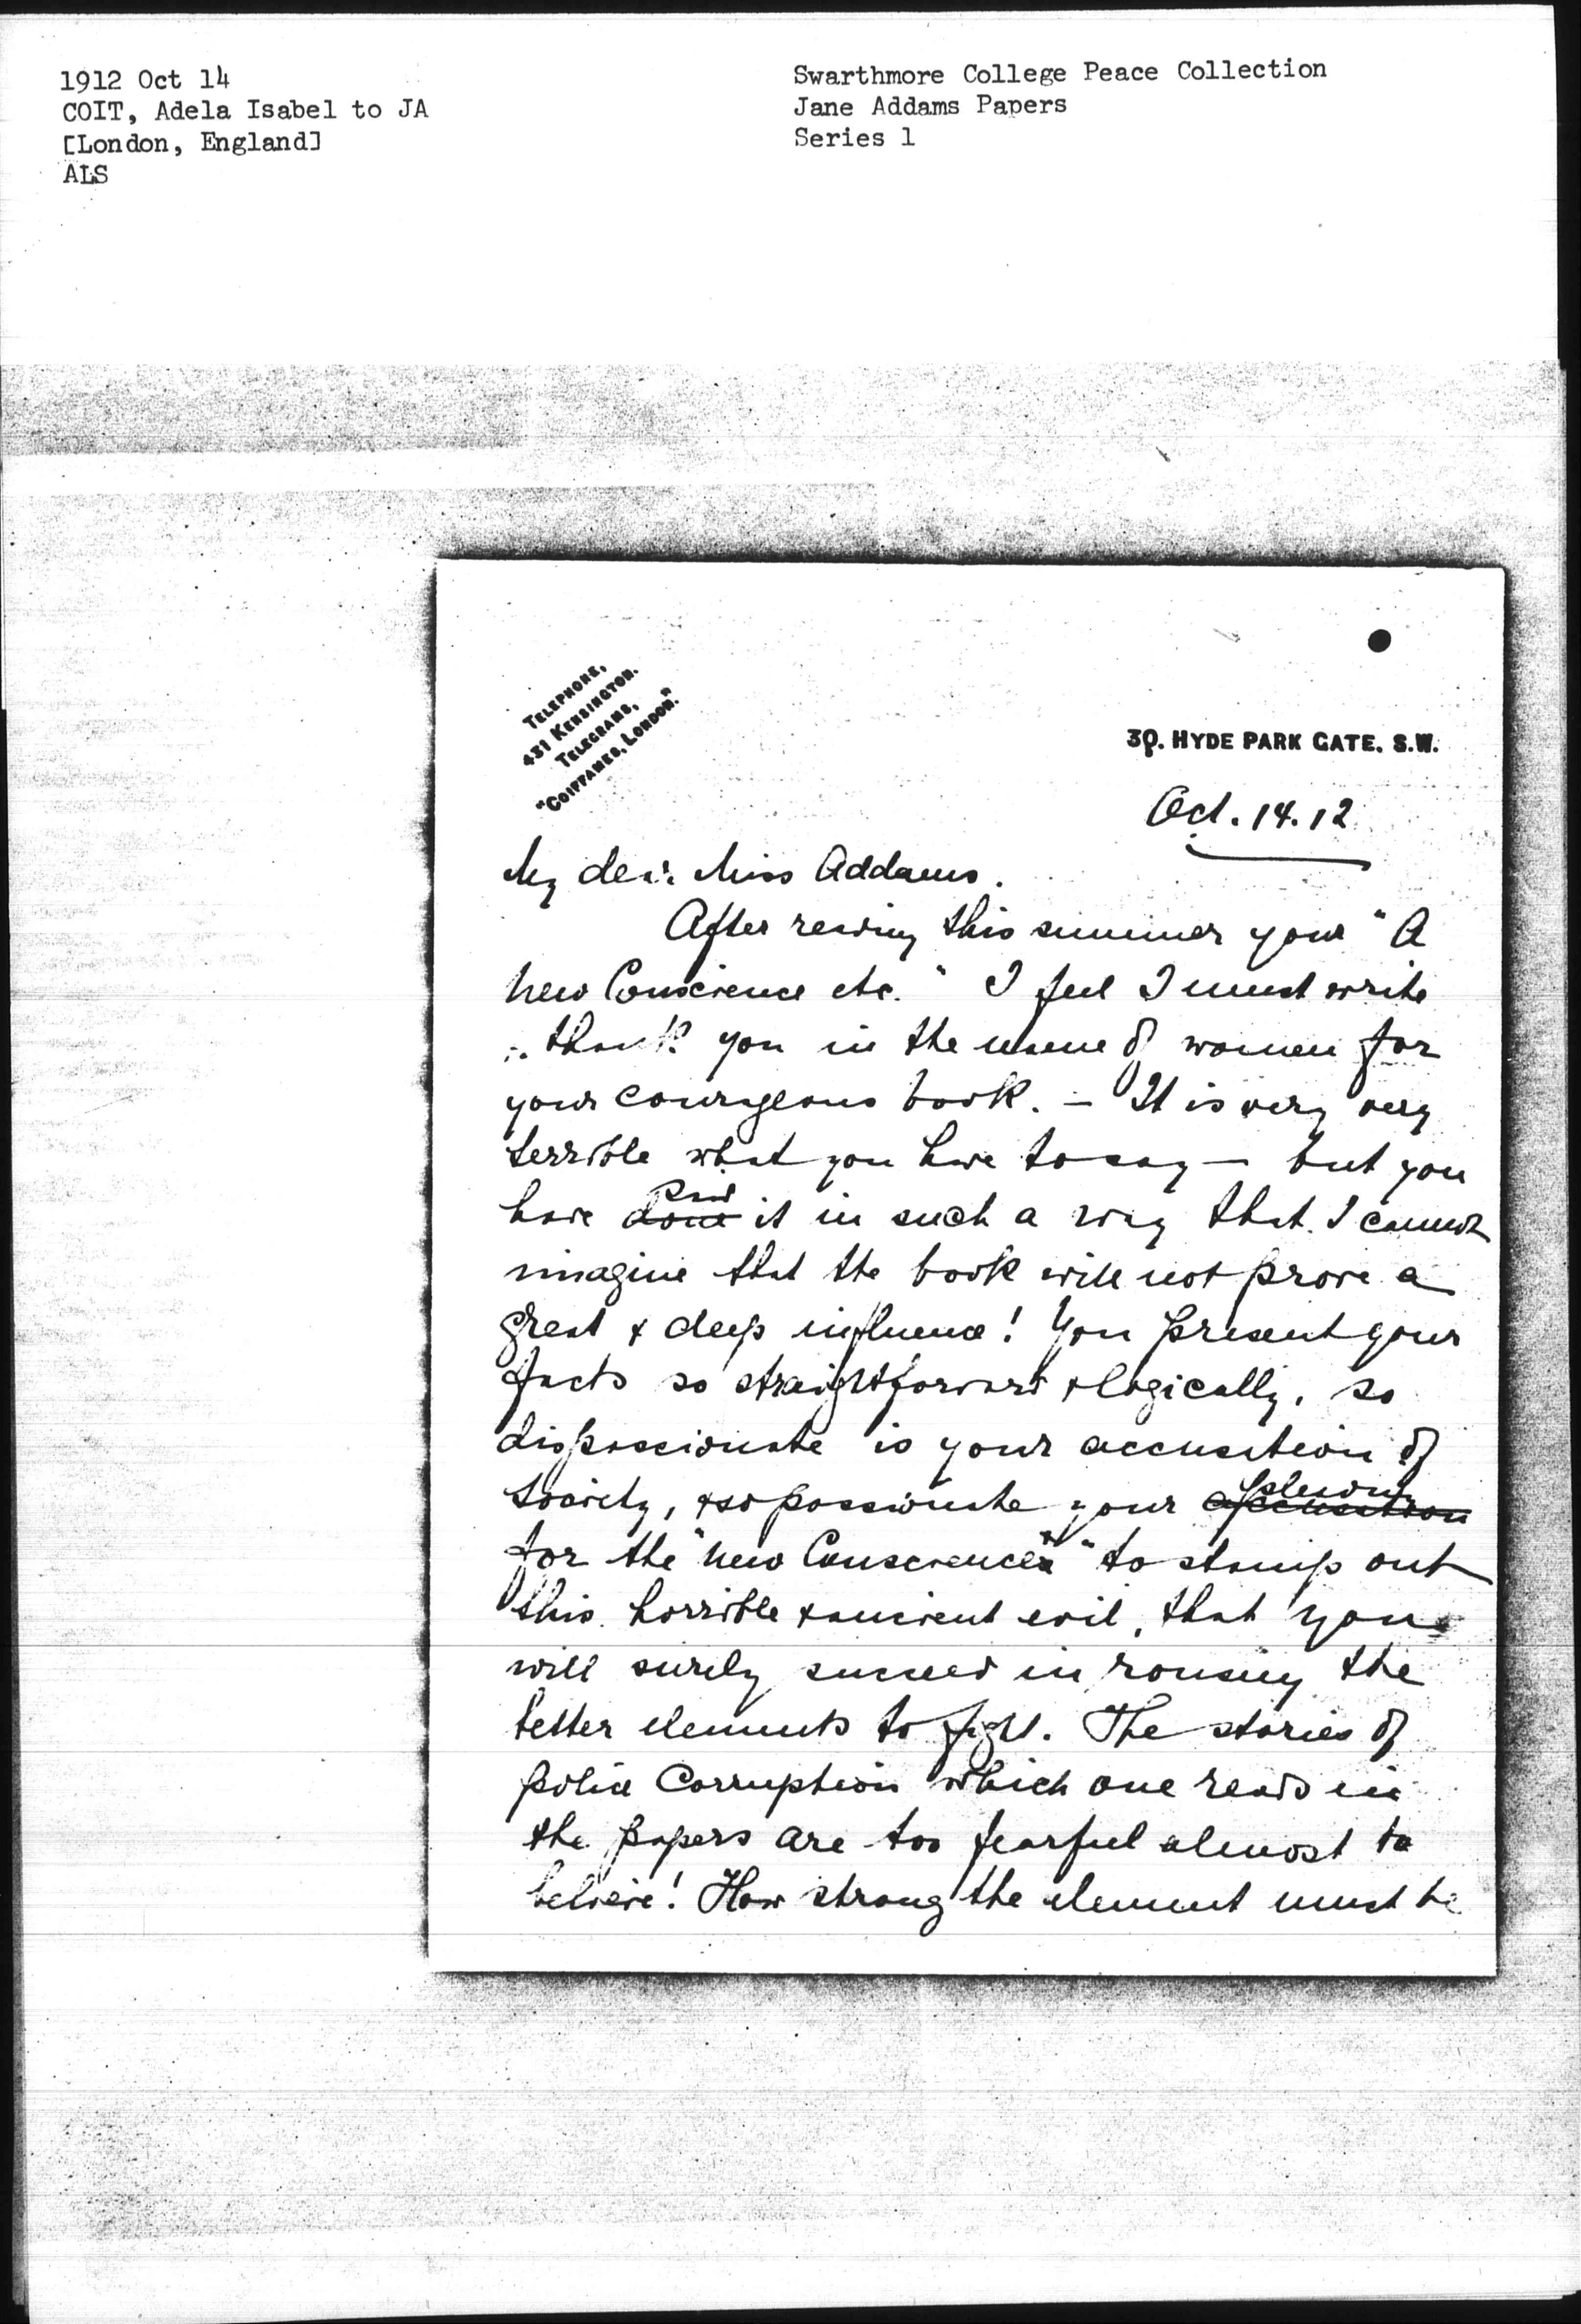 1912 Oct 14
COIT, Adela Isabel to JA
[London, England]
ALS
Swarthmore College Peace Collection
Jane Addams Papers
Series 1
TELEPHONE,
431 KENSINGTON.
TELEGRAMS,
"COIFFAMES, LONDON."
30. HYDE PARK GATE. S.W.
Oct. 14. 12
My dear Miss Addams.
After reading this summer your "A
new Conscience etc." I feel I must write
thank you in the name of women for
your courageous book. – It is very very
terrible what you have to say – but you
have done said it in such a way that I cannot
imagine that the book will not prove a
great & deep influence! You present your
facts so straightforward & logically, so
dispassionate is your accusation of
society, & so passionate your accusation pleading
for the "new Conscience" to stamp out
this horrible & ancient evil, that you
will surely succeed in rousing the
better elements to fight. The stories of
police Corruption which one reads in
the papers are too fearful almost to
believe! How strong the element must be